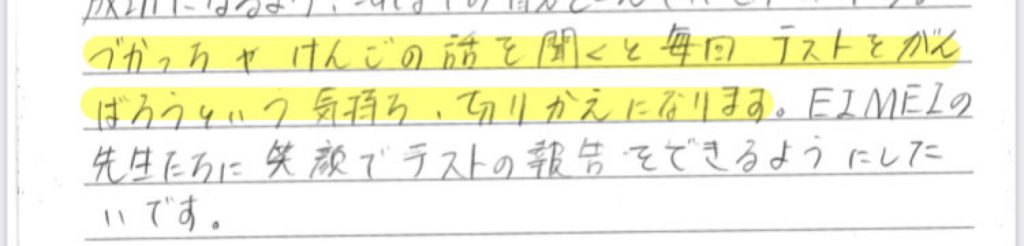 づかっちゃけんごの話を聞くと毎回テストをがん
ばろうという気持ち、切りかえになります。EIMEIの
先生たちに笑顔でテストの報告をできるようにした
いです。